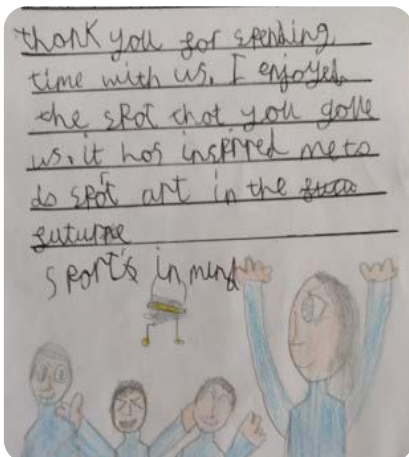 thank you for spending
time with us. I enjoyed
the spot that you gave
us. it has inspired me to
do spot art in the
futurne
sports in mind